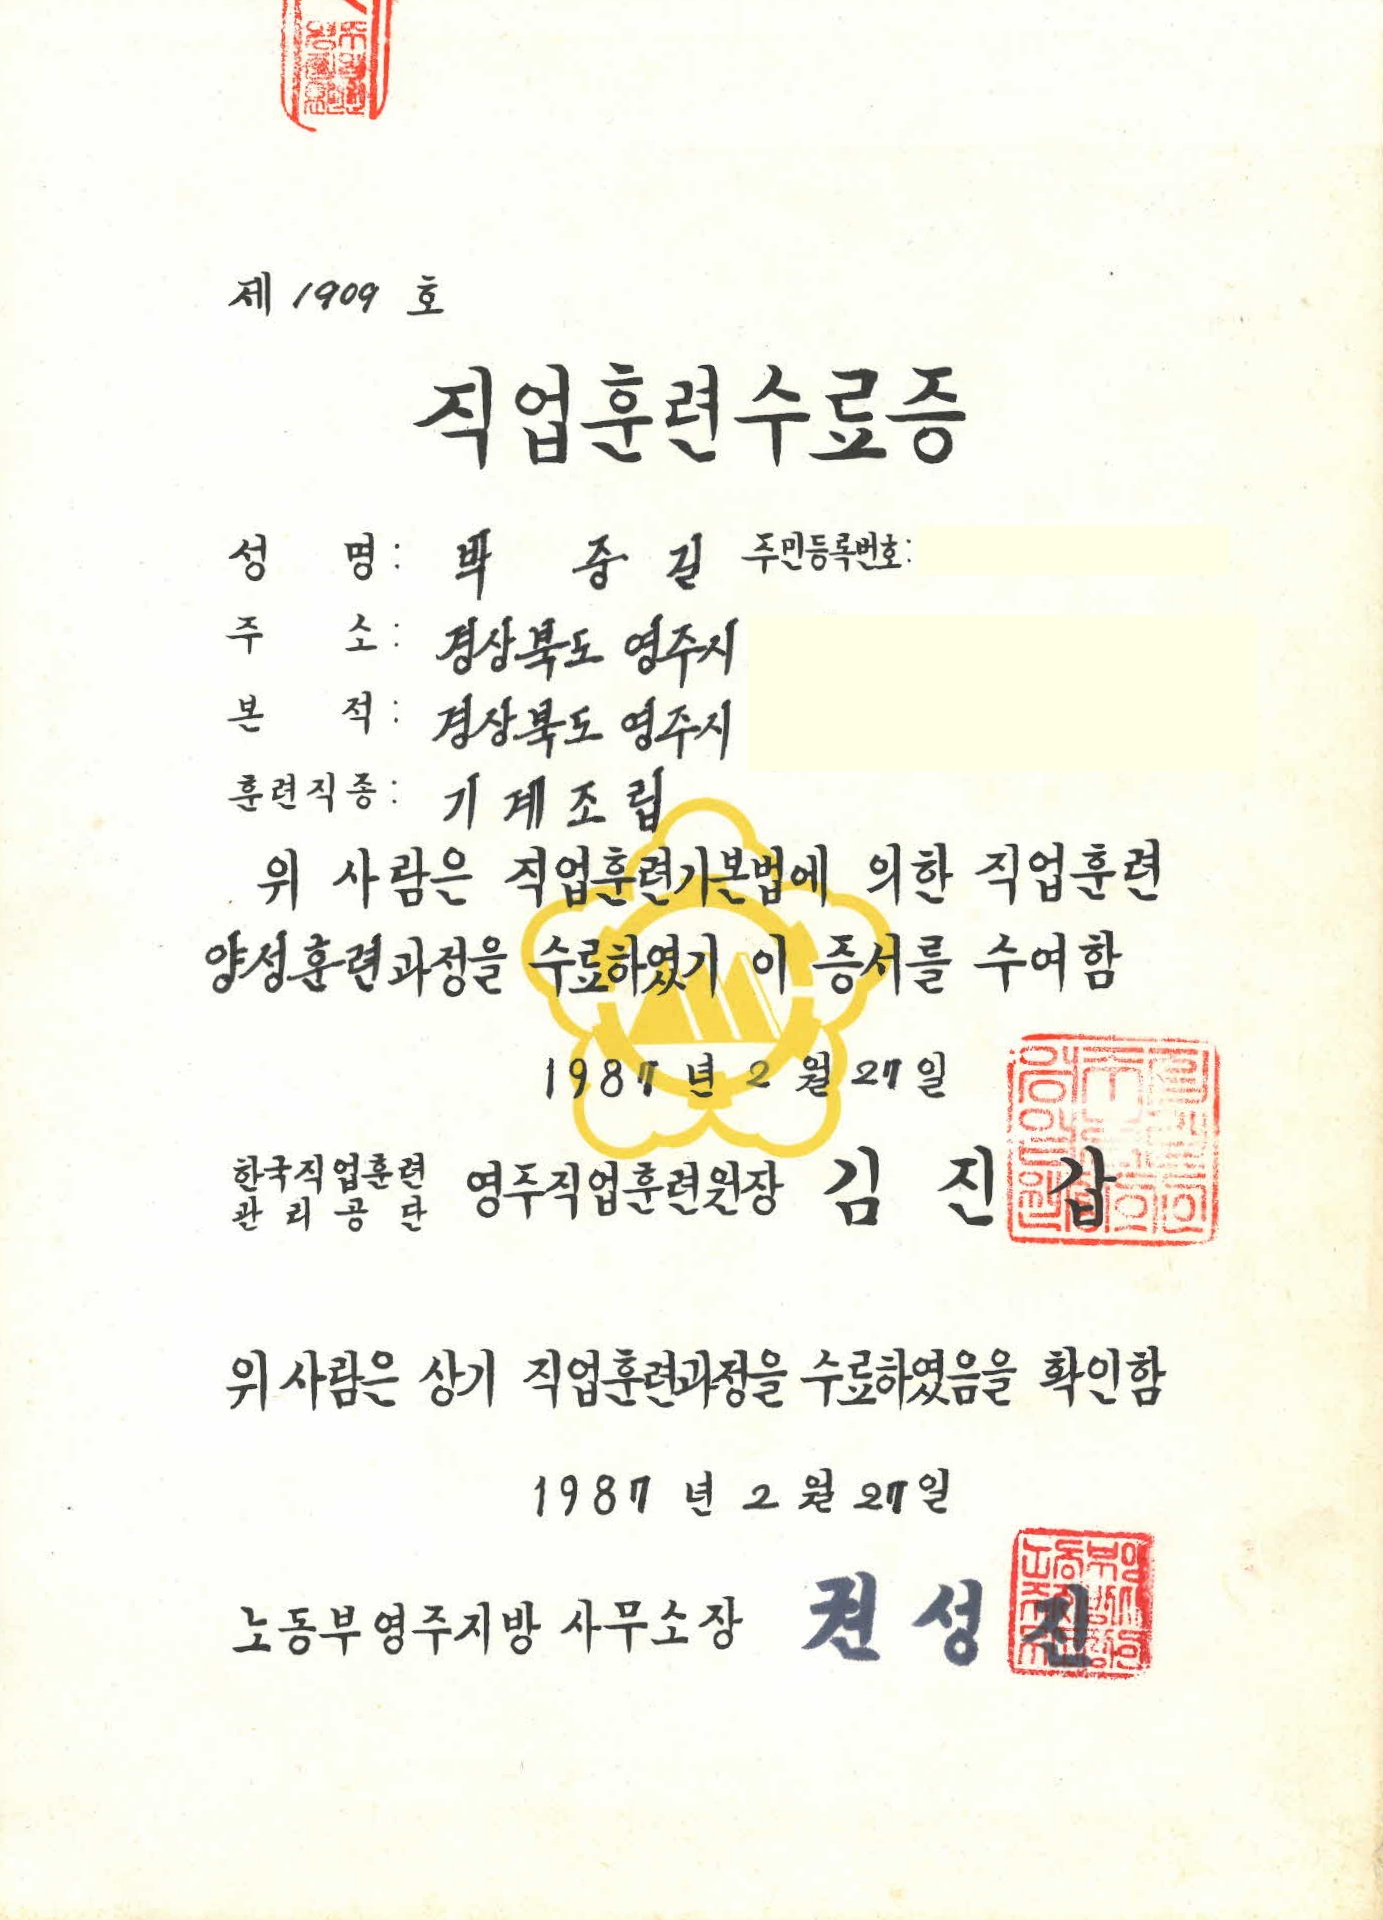 제 1909 호
직업훈련수료증
성 명: 박 중 길 주민등록번호:
주 소: 경상북도 영주시
본 적: 경상북도 영주시
훈련직종: 기계조립
위 사람은 직업훈련기본법에 의한 직업훈련
양성훈련과정을 수료하였기 이 증서를 수여함
1987 년 2 월 27 일
한국직업훈련
관리공단 영주직업훈련원장 김 진 갑
위 사람은 상기 직업훈련과정을 수료하였음을 확인함
1987 년 2 월 27 일
노동부영주지방 사무소장 권 성 진